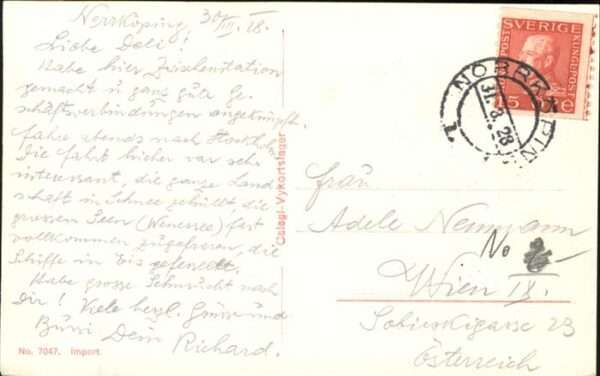 Norrköping 30/III. 28.
Liebe Deli!
Habe hier Zwischenstation
gemacht u ganz gute Ge-
schäftsverbindungen angeknüpft.
fahre abends nach Stockholm
Die fahrt hieher war sehr
interessant, die ganze Land
schaft in Schnee gehüllt, die
grossen Seen (Wenersee) fast
vollkommen zugefroren, die
Schiffe in Eis
Habe grosse Sehnsucht nach
Dir! Viele herzl. Grüsse und
Bussi Dein
Richard.
No. 7047. Import.
Oslagl-Vykortslager
SVERIGE
POST
KUNGL POST
15
NORRKÖPING
31.3.28
1
Frau
Adele Neumann
No
Wien IX.
Sobieskigasse 23
Österreich